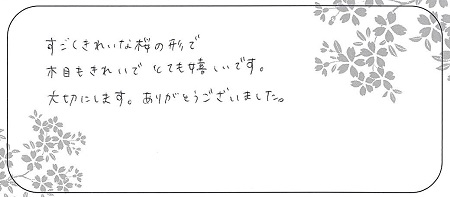 すごくきれいな桜の形で
木目もきれいで とても嬉しいです。
大切にします。ありがとうございました。